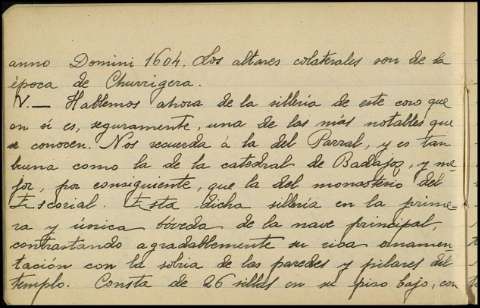 anno Domini 1604. Los altares colaterales son de la
época de Churrigera.
IV.— Hablemos ahora de la silleria de este coro que
en sí es, seguramente, una de las más notables que
se conocen. Nos recuerda á la del Parral, y es tan
buena como la de la catedral de Badajoz, y me-
jor, por consiguiente, que la del monasterio del
Escorial. Esta dicha silleria en la prime-
ra y única bóveda de la nave principal,
contrastando agradablemente su rica ornamen-
tación con la sobria de las paredes y pilares del
templo. Consta de 26 sillas en su piso bajo, con